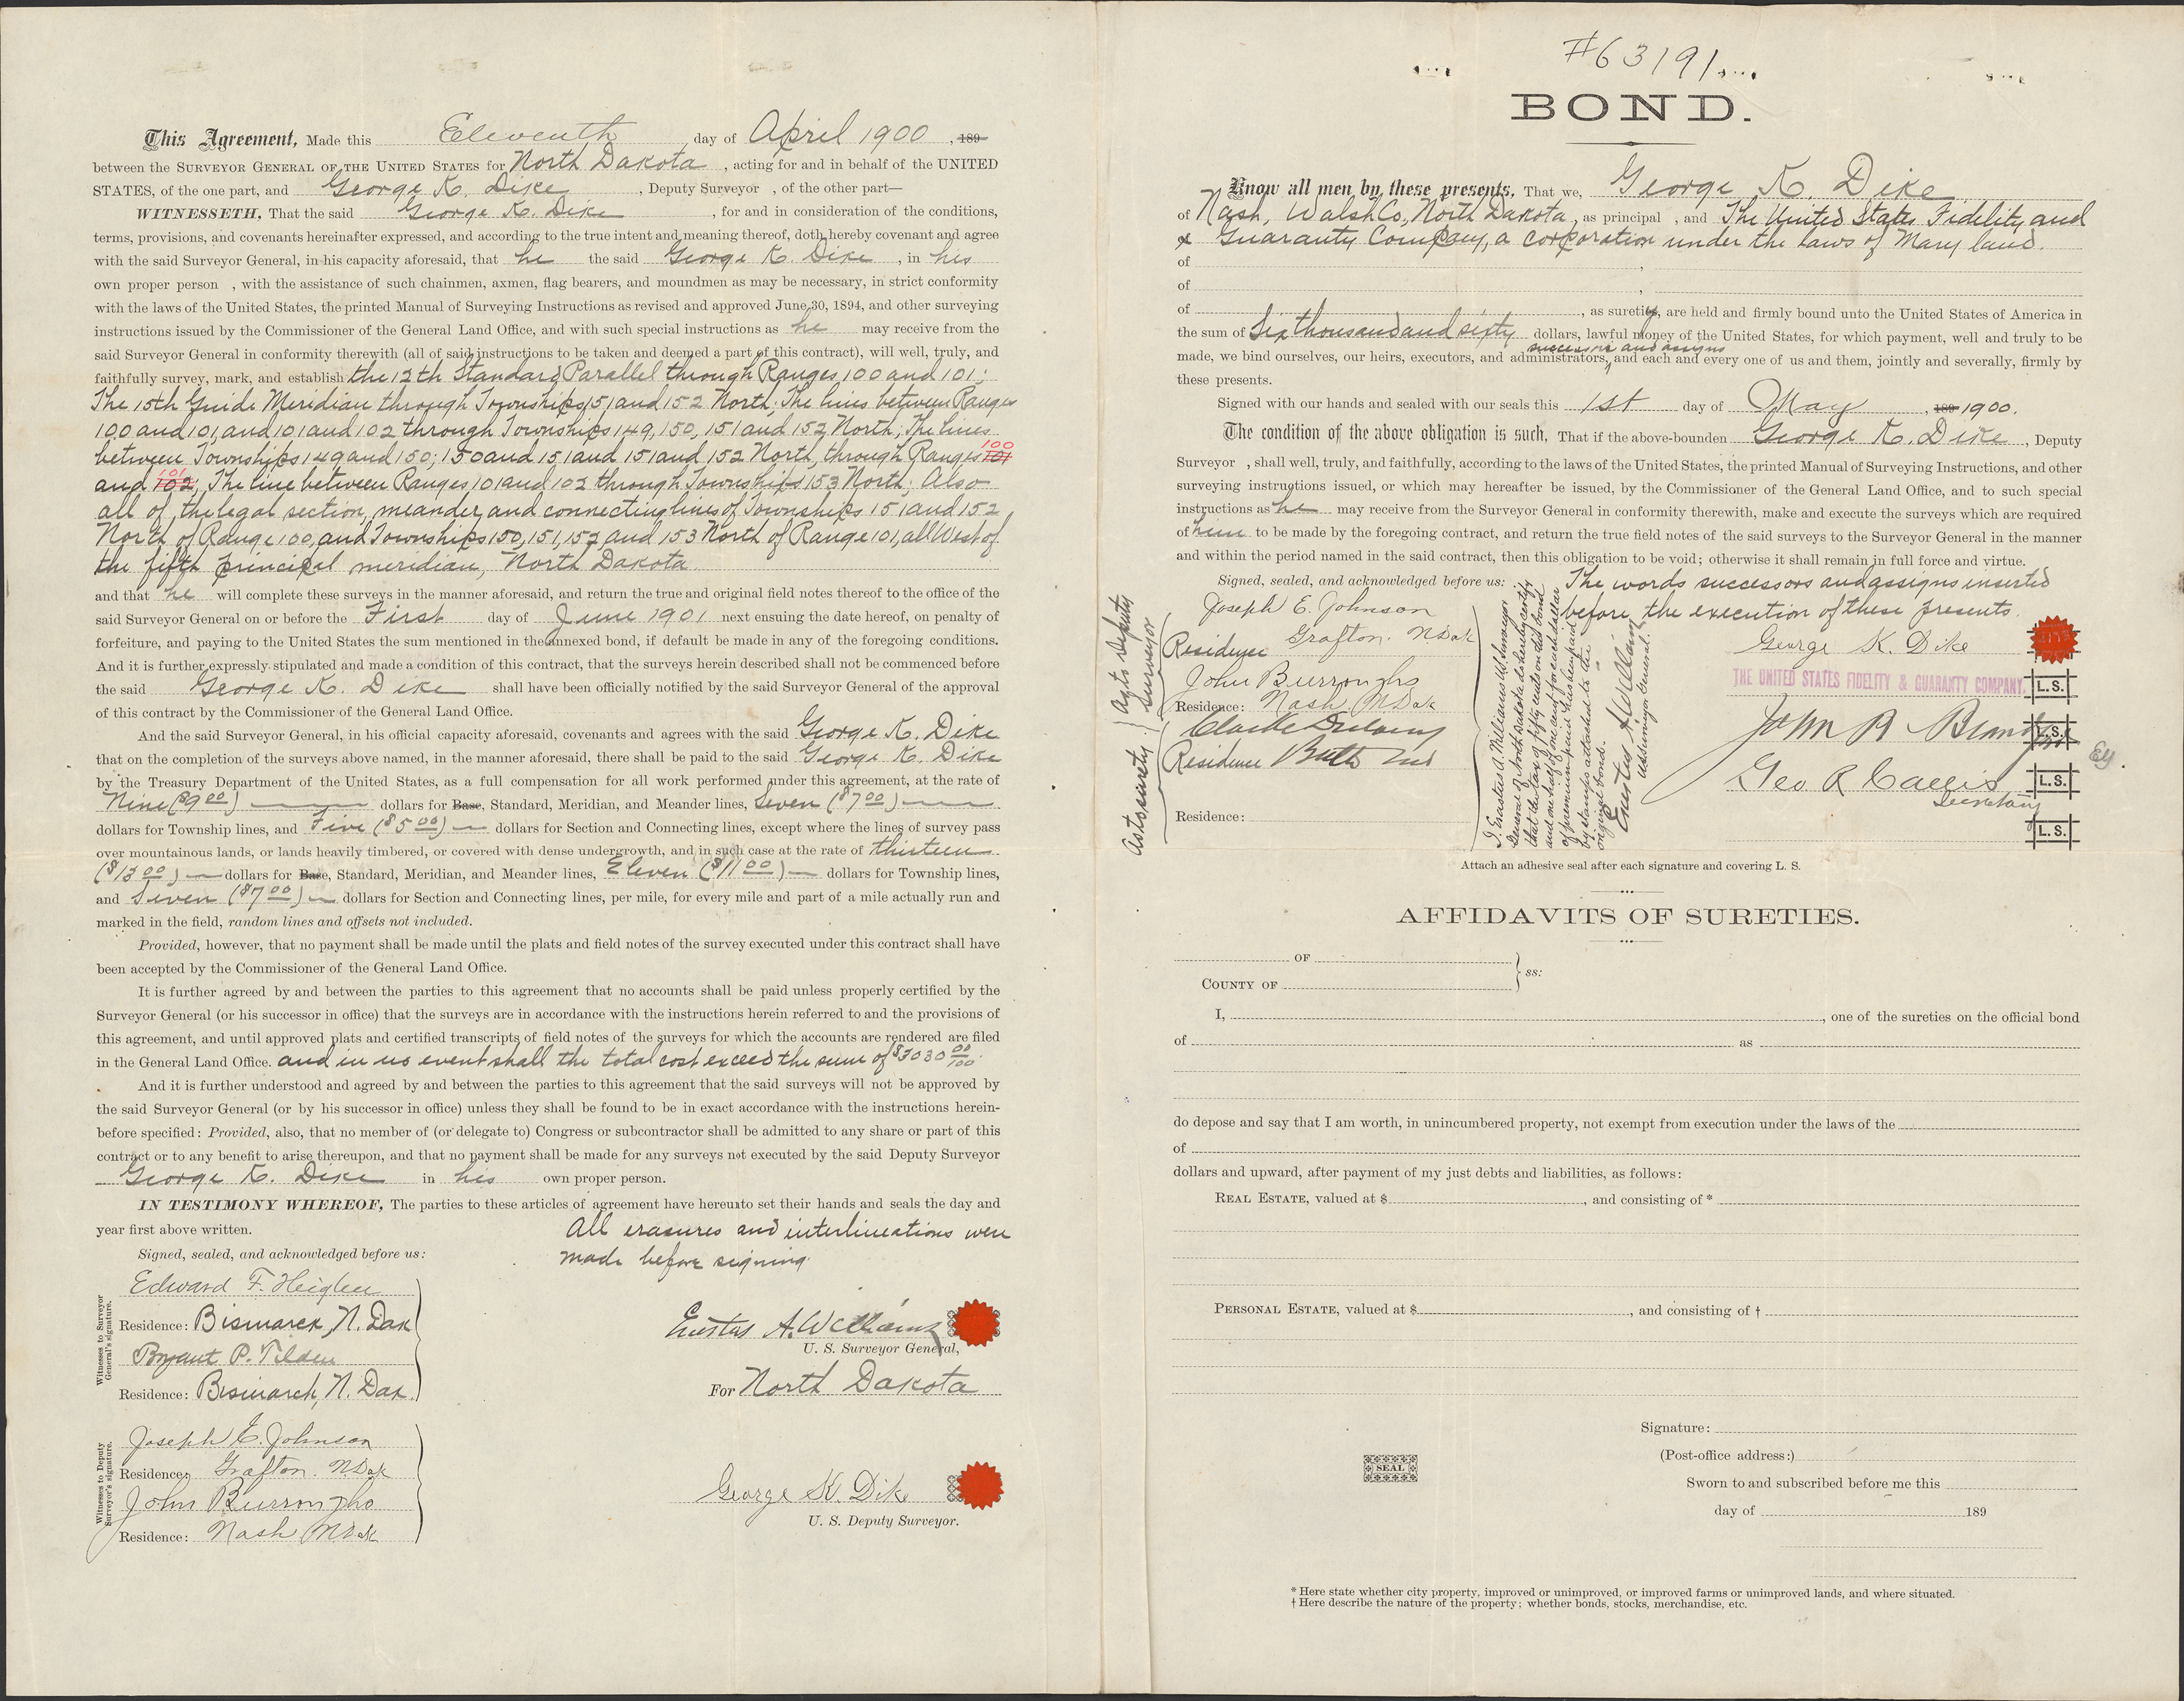 This Agreement, Made this Eleventh day of April 1900, 189
between the SURVEYOR GENERAL OF THE UNITED STATES for North Dakota, acting for and in behalf of the UNITED
STATES, of the one part, and George K. Dike, Deputy Surveyor , of the other part—
WITNESSETH, That the said George K. Dike, for and in consideration of the conditions,
terms, provisions, and covenants hereinafter expressed, and according to the true intent and meaning thereof, doth hereby covenant and agree
with the said Surveyor General, in his capacity aforesaid, that he the said George K. Dike, in his
own proper person , with the assistance of such chainmen, axmen, flag bearers, and moundmen as may be necessary, in strict conformity
with the laws of the United States, the printed Manual of Surveying Instructions as revised and approved June 30, 1894, and other surveying
instructions issued by the Commissioner of the General Land Office, and with such special instructions as he may receive from the
said Surveyor General in conformity therewith (all of said instructions to be taken and deemed a part of this contract), will well, truly, and
faithfully survey, mark, and establish the 12th Standard Parallel through Ranges 100 and 101;
The 15th Guide Meridian through Townships 151 and 152 North; The lines between Ranges
100 and 101, and 101 and 102 through Townships 149, 150, 151 and 152 North; The lines
between Townships 149 and 150; 150 and 151 and 151 and 152 North, through Ranges 101 100
and 102 101; The line between Ranges 101 and 102 through Townships 153 North; Also
all of the legal section, meander, and connecting lines of Townships 151 and 152
North of Range 100, and Townships 150, 151, 152, and 153 North of Range 101, all West of
the fifth principal meridian, North Dakota
and that he will complete these surveys in the manner aforesaid, and return the true and original field notes thereof to the office of the
said Surveyor General on or before the First day of June 1901 next ensuing the date hereof, on penalty of
forfeiture, and paying to the United States the sum mentioned in the annexed bond, if default be made in any of the foregoing conditions.
And it is further expressly stipulated and made a condition of this contract, that the surveys herein described shall not be commenced before
the said George K. Dike shall have been officially notified by the said Surveyor General of the approval
of this contract by the Commissioner of the General Land Office.
And the said Surveyor General, in his official capacity aforesaid, covenants and agrees with the said George K. Dike
that on the completion of the surveys above named, in the manner aforesaid, there shall be paid to the said George K. Dike
by the Treasury Department of the United States, as a full compensation for all work performed under this agreement, at the rate of
Nine ($9.00) dollars for Base, Standard, Meridian, and Meander lines, Seven ($7.00)
dollars for Township lines, and Five ($5.00) dollars for Section and Connecting lines, except where the lines of survey pass
over mountainous lands, or lands heavily timbered, or covered with dense undergrowth, and in such case at the rate of thirteen
($13.00) dollars for Base, Standard, Meridian, and Meander lines, Eleven ($11.00) dollars for Township lines,
and Seven ($7.00) dollars for Section and Connecting lines, per mile, for every mile and part of a mile actually run and
marked in the field, random lines and offsets not included.
Provided, however, that no payment shall be made until the plats and field notes of the survey executed under this contract shall have
been accepted by the Commissioner of the General Land Office.
It is further agreed by and between the parties to this agreement that no accounts shall be paid unless properly certified by the
Surveyor General (or his successor in office) that the surveys are in accordance with the instructions herein referred to and the provisions of
this agreement, and until approved plats and certified transcripts of field notes of the surveys for which the accounts are rendered are filed
in the General Land Office. and in no event shall the total cost exceed the sum of $3030 00/100.
And it is further understood and agreed by and between the parties to this agreement that the said surveys will not be approved by
the said Surveyor General (or by his successor in office) unless they shall be found to be in exact accordance with the instructions herein-
before specified: Provided, also, that no member of (or delegate to) Congress or subcontractor shall be admitted to any share or part of this
contract or to any benefit to arise thereupon, and that no payment shall be made for any surveys not executed by the said Deputy Surveyor
George K. Dike in his own proper person.
IN TESTIMONY WHEREOF, The parties to these articles of agreement have hereunto set their hands and seals the day and
year first above written.
All erasures and interlineations were
made before signing.
Signed, sealed, and acknowledged before us:
Witnesses to Surveyor General's signature.
Edward F. Heiglen
Residence: Bismarck, N. Dak
Bryant P. Tilden
Residence: Bismarck, N. Dak.
Erastus A. Williams
U. S. Surveyor General,
For North Dakota
Witnesses to Deputy Surveyor's signature.
Joseph E. Johnson
Residence: Grafton. N.Dak
John Burroughs
Residence: Nash N.Dak
George K. Dike
U. S. Deputy Surveyor.
#63191
BOND.
Know all men by these presents, That we, George K. Dike
of Nash, Walsh Co., North Dakota, as principal , and The United States Fidelity and
& Guaranty Company, a corporation under the laws of Maryland.
of
of
of , as surety, are held and firmly bound unto the United States of America in
the sum of Six thousand and sixty dollars, lawful money of the United States, for which payment, well and truly to be
made, we bind ourselves, our heirs, executors, and administrators, successors and assigns and each and every one of us and them, jointly and severally, firmly by
these presents.
Signed with our hands and sealed with our seals this 1st day of May, 189 1900.
The condition of the above obligation is such, That if the above-bounden George K. Dike, Deputy
Surveyor , shall well, truly, and faithfully, according to the laws of the United States, the printed Manual of Surveying Instructions, and other
surveying instructions issued, or which may hereafter be issued, by the Commissioner of the General Land Office, and to such special
instructions as he may receive from the Surveyor General in conformity therewith, make and execute the surveys which are required
of him to be made by the foregoing contract, and return the true field notes of the said surveys to the Surveyor General in the manner
and within the period named in the said contract, then this obligation to be void; otherwise it shall remain in full force and virtue.
Signed, sealed, and acknowledged before us:
The words successors and assigns inserted
before the execution of these presents.
As to Deputy Surveyor
Joseph E. Johnson
Residence Grafton. N.Dak
John Burroughs
Residence: Nash N.Dak
As to surety.
Residence
Residence:
I, Erastus A. Williams U.S. Surveyor
General of North Dakota do hereby certify
that the tax of fifty cents on said bond
and one half of one cent for each dollar
of premium paid has been paid
by stamps attached to the
original bonds.
Erastus A. Williams
U.S. Surveyor General.
George K. Dike
THE UNITED STATES FIDELITY & GUARANTY COMPANY.
L. S.
John R Bland
L. S.
Geo R Callis
Secretary
L. S.
L. S.
Attach an adhesive seal after each signature and covering L. S.
AFFIDAVITS OF SURETIES.
OF
COUNTY OF
ss:
I, , one of the sureties on the official bond
of as
do depose and say that I am worth, in unincumbered property, not exempt from execution under the laws of the
of
dollars and upward, after payment of my just debts and liabilities, as follows:
REAL ESTATE, valued at $ , and consisting of *
PERSONAL ESTATE, valued at $ , and consisting of †
Signature:
(Post-office address:)
SEAL
Sworn to and subscribed before me this
day of 189
* Here state whether city property, improved or unimproved, or improved farms or unimproved lands, and where situated.
† Here describe the nature of the property; whether bonds, stocks, merchandise, etc.